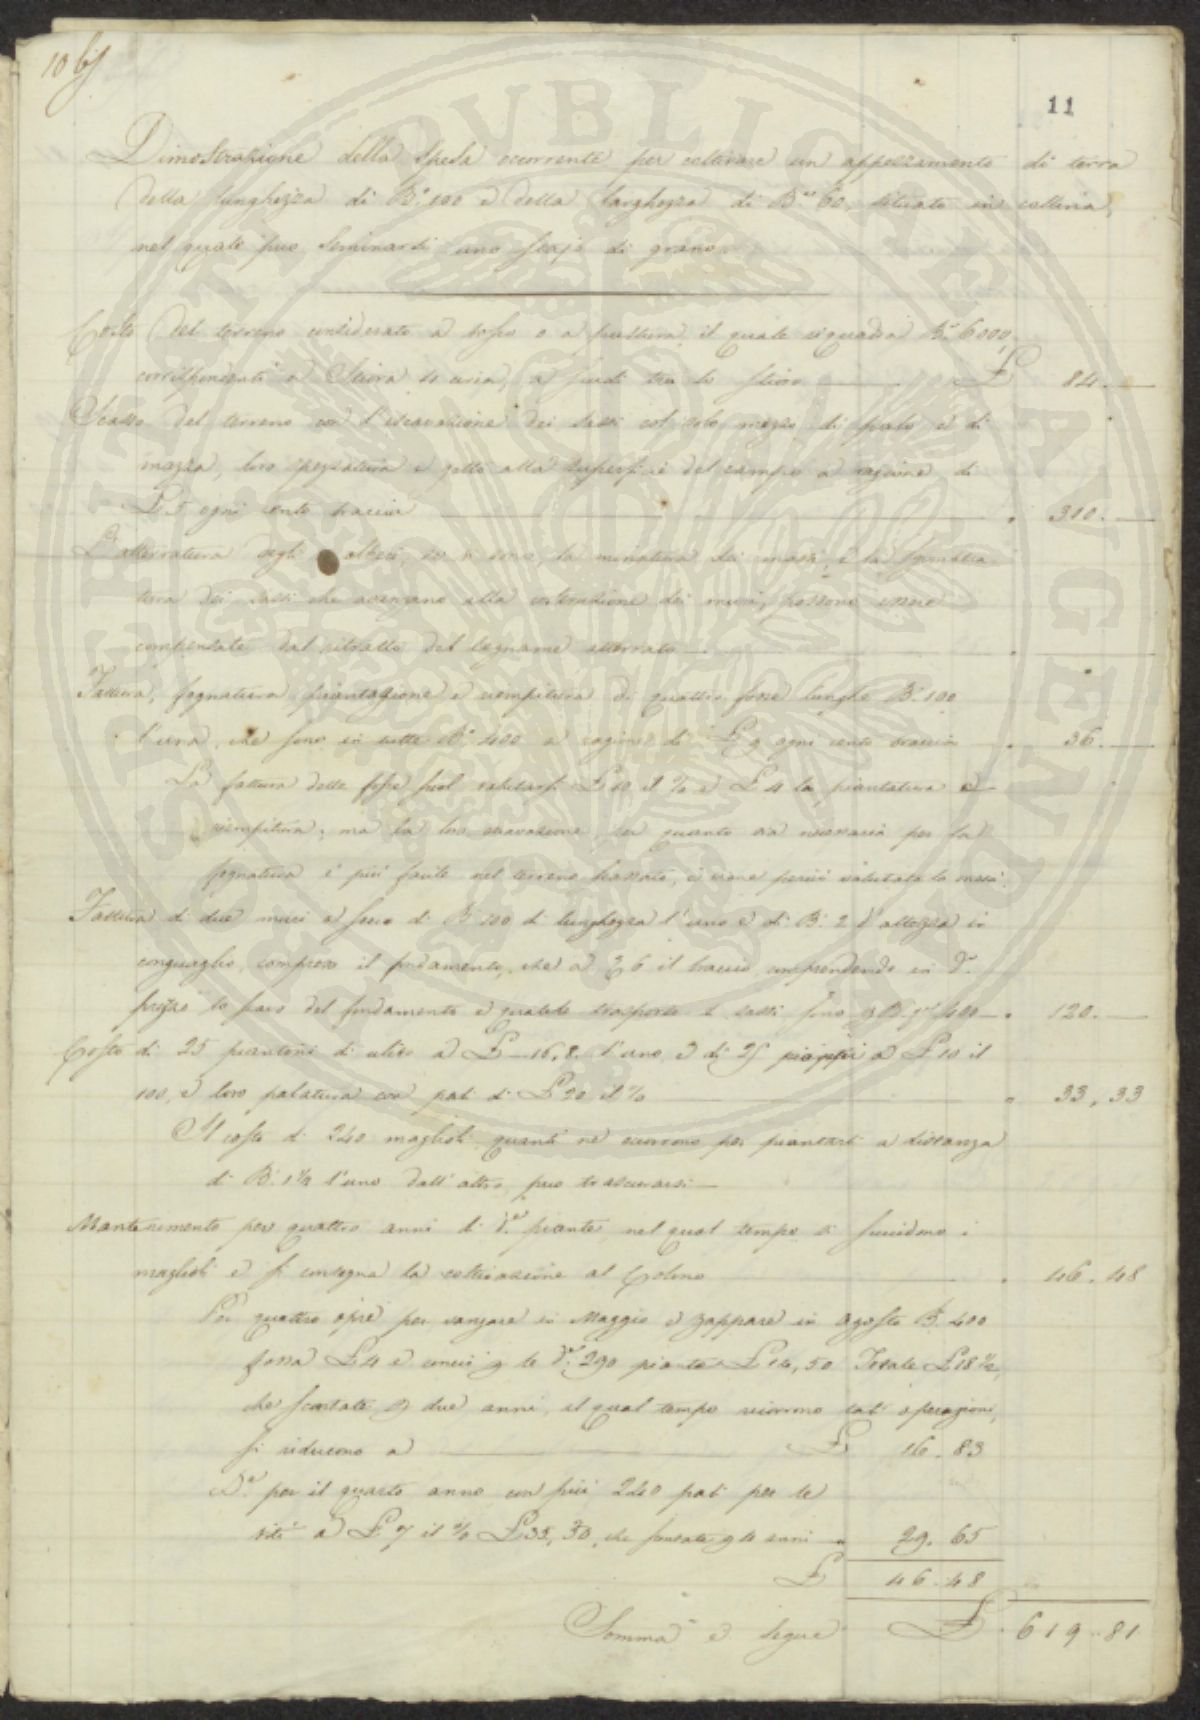 10 bis
11
Dimostrazione della spesa occorrente per coltivare un appezzamento di terra
della lunghezza di B.a 100 e della larghezza di B.a 60, situato in collina,
nel quale può seminarsi uno stajo di grano.
Costo del terreno considerato a bosco o a pastura, il quale riquadra B.a 6000,
corrispondenti a Stiora 4 circa, a scudi tre lo stioro £ 84.
Scasso del terreno con l'escavazione dei sassi col solo mezzo di palo e di
mazza, loro spezzatura e getto alla superficie del campo a ragione di
£ 5 ogni cento braccia " 300.
L'atterratura degli alberi, se vi sono, la minatura dei massi, e la
dei sassi che avanzano alla costruzione dei muri, possono essere
compensate dal ritratto del legname atterrato
Fattura, fognatura, piantagione e riempitura di quattro fosse lunghe B.a 100
l'una, che sono in tutte B.a 400 a ragione di £ 9 ogni cento braccia " 36.
La fattura delle fosse suol valutarsi £ 10 il % e £ 4 la piantatura e
riempitura; ma la loro escavazione, per quanto sia necessaria per la
fognatura è più facile nel terreno scassato, e viene perciò valutata la metà.
Fattura di due muri a secco di B.a 100 di lunghezza l'uno e di B.a 2 d'altezza in
conguaglio, compreso il fondamento, che a £ 6 il braccio, comprendendo in d.o
prezzo lo scavo del fondamento e qualche trasporto di sassi, sono B.a 400 " 120.
Costo di 25 piantoni di ulivo a £ – 16.8. l'uno e di 25 pioppi a £ 10 il
100, e loro palatura con pali di £ 20 il % " 33, 33
Il costo di 240 maglioli, quanti ne occorrono per piantarli a distanza
di B.a 1 1/2 l'uno dall'altro, può trascurarsi
Mantenimento per quattro anni di d.e piante, nel qual tempo si succidono i
maglioli e si consegna la coltivazione al Colono " 46. 48
Per quattro opre per vangare in Maggio e zappare in Agosto B.a 400
fossa £ 4 e conci p le d.e 290 piante £ 14, 50 Totale £ 18 1/2,
che scontate p due anni, il qual tempo ricorrono tali operazioni,
si riducono a £ 16. 83
D.e per il quarto anno con più 240 pali per le
viti a £ 7 il % £ 35, 30, che scontate p 4 anni " 29. 65
£ 46. 48
Somma e segue £. 619. 81